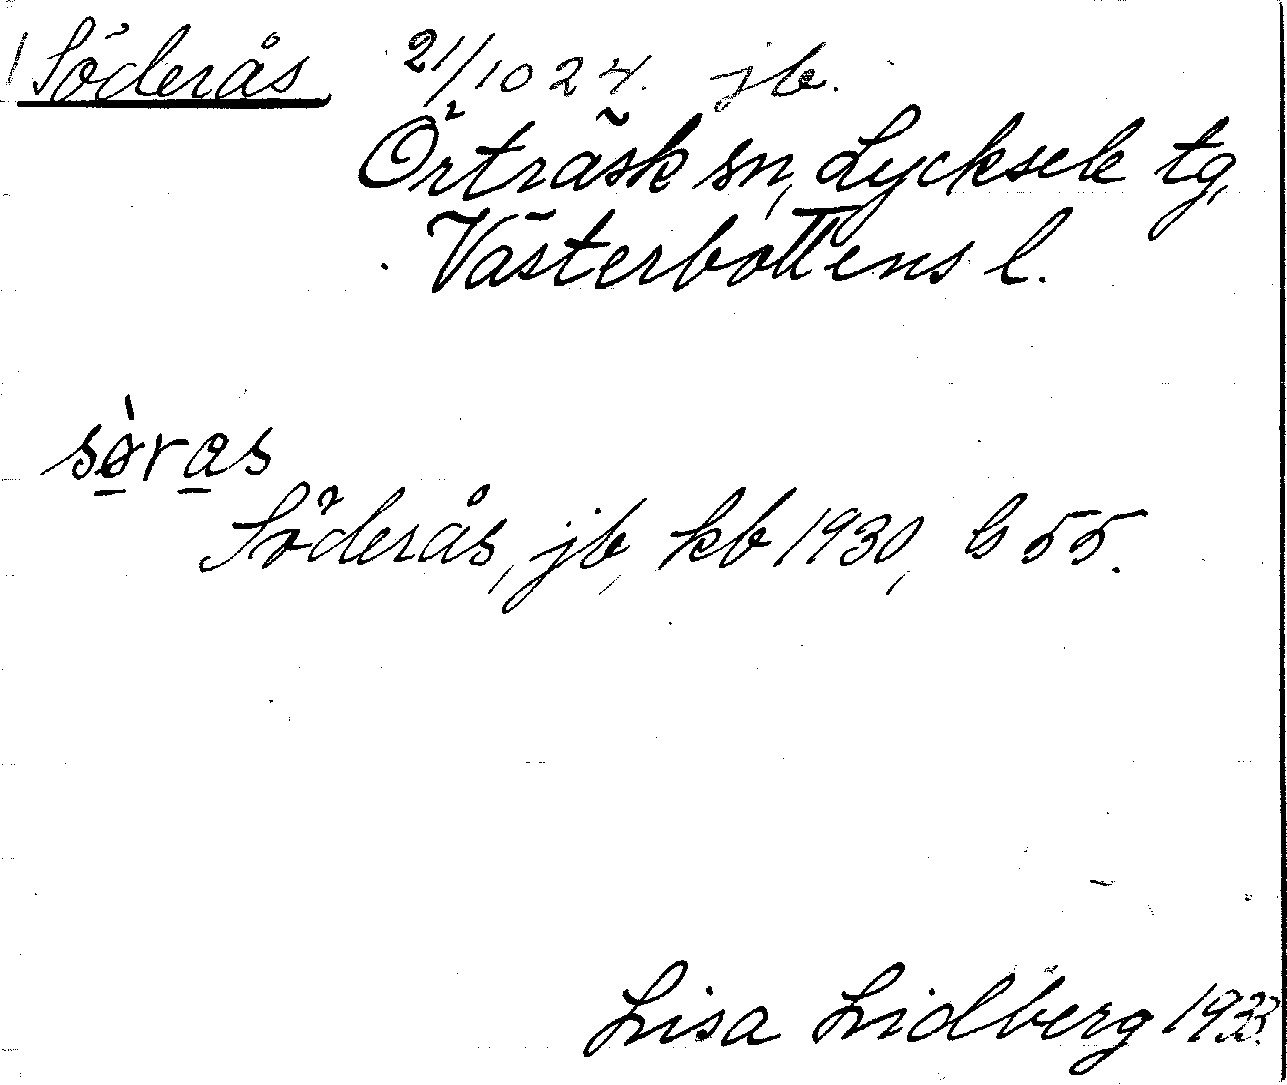 Söderås 21/10 24. jb.
Örträsk sn, Lycksele tg,
Västerbottens l.
sø̀ras
Söderås, jb, kb 1930, G 55.
Lisa Lidberg 1933.